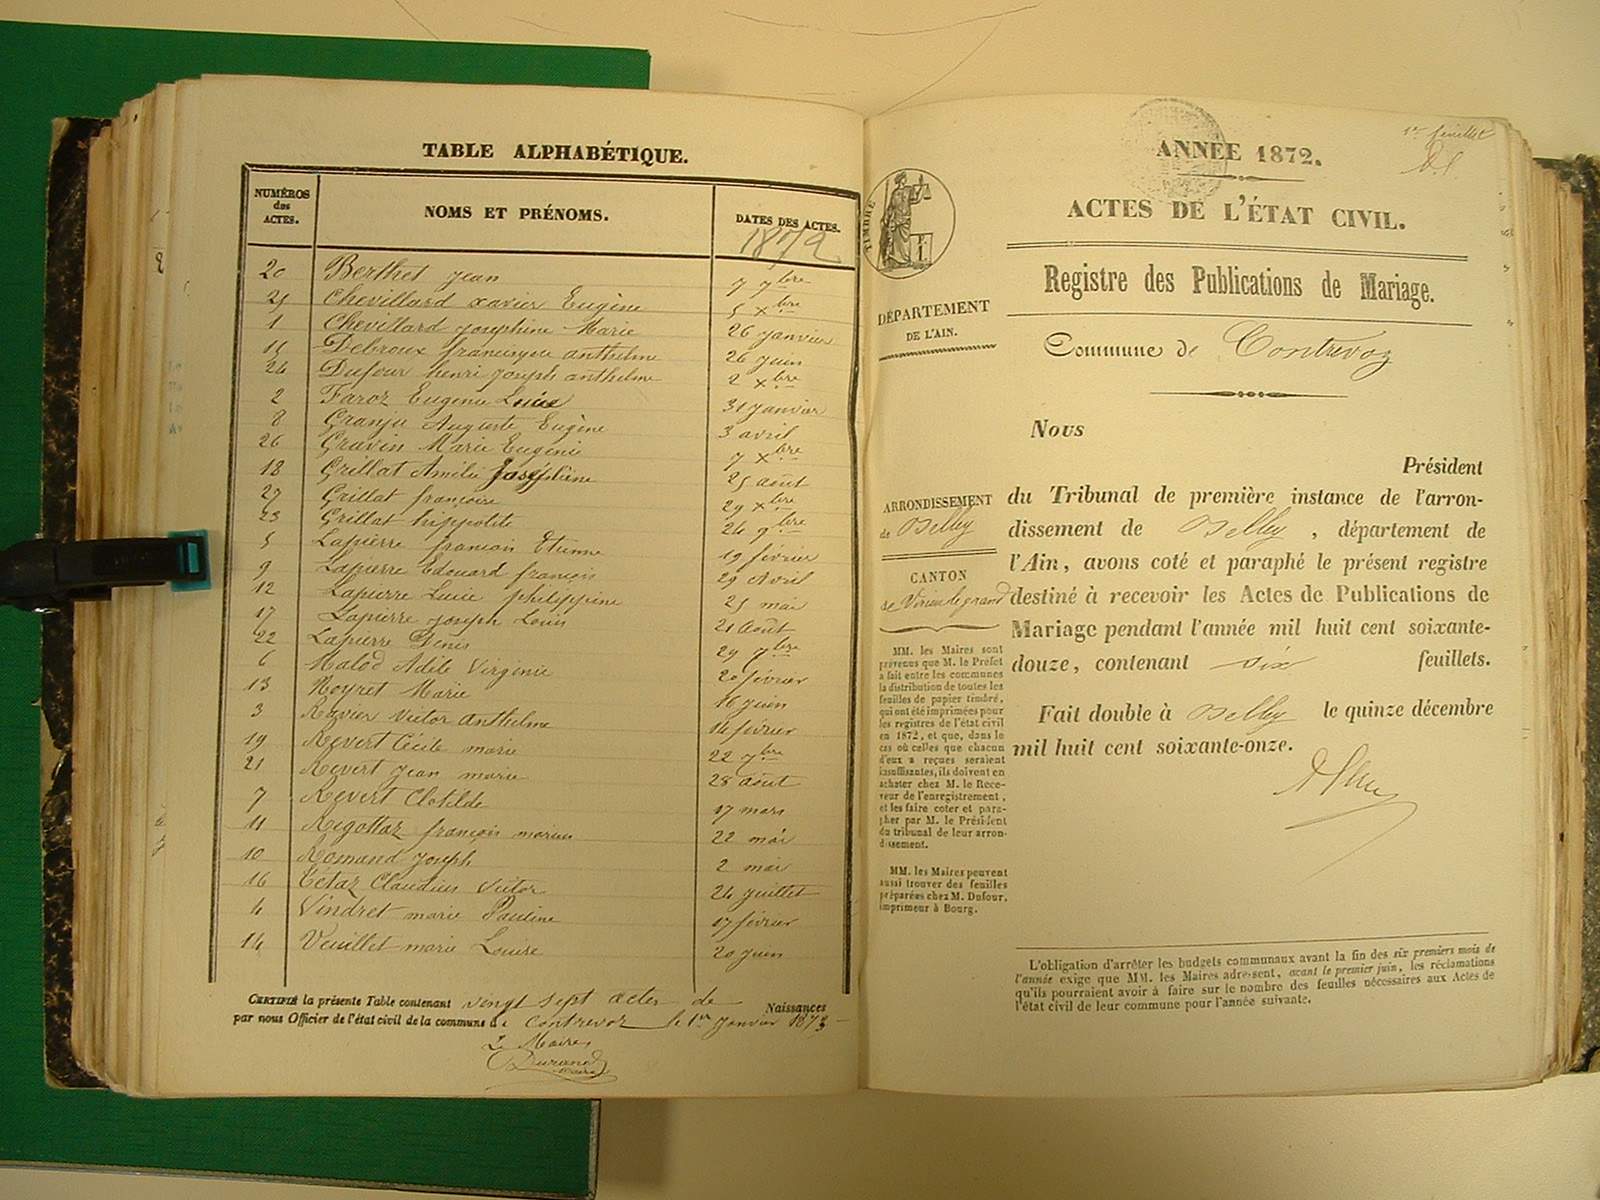 TABLE ALPHABÉTIQUE.
NUMÉROS des ACTES. NOMS ET PRÉNOMS. DATES DES ACTES.
1872
20 Berthet Jean 7 7bre
25 Chevillard xavier Eugène 5 xbre
1 Chevillard Joséphine Marie 26 Janvier
15 Debroux françisque anthelme 26 juin
24 Dufour henri Joseph anthelme 2 xbre
2 Faroz Eugenie Lucie 31 Janvier
8 Granju Auguste Eugène 3 avril
26 Gravin Marie Eugénie 7 xbre
18 Grillat Amélie Joséphine 25 août
27 Grillat françoise 29 xbre
23 Grillat hippolite 24 9bre
5 Lapierre françois Etienne 19 février
9 Lapierre Edouard françois 29 Avril
12 Lapierre Lucie philippine 25 mai
17 Lapierre Joseph Louis 21 Août
22 Lapierre Denis 29 7bre
6 Malod Adèle Virginie 20 février
13 Noyret Marie 16 juin
3 Ravier Victor Anthelme 14 février
19 Revert Cécile marie 22 7bre
21 Revert Jean marie 28 août
7 Revert Clotilde 17 mars
11 Rigottaz françois marius 22 mai
10 Romand Joseph 2 mai
16 Tétaz Claudius Victor 24 juillet
4 Vindret marie Pauline 17 février
14 Veuillet marie Louise 20 juin
CERTIFIÉ la présente Table contenant vingt sept actes de Naissances
par nous Officier de l'état civil de la commune de Contrevoz le 1er Janvier 1873
Le Maire
Durand
maire
1er feuillet
ANNÉE 1872.
ACTES DE L'ÉTAT CIVIL.
TIMBRE
Registre des Publications de Mariage.
DÉPARTEMENT
DE L'AIN.
Commune de Contrevoz
Nous
Président
ARRONDISSEMENT
de Belley
CANTON
de Virieu le grand
du Tribunal de première instance de l'arron-
dissement de Belley, département de
l'Ain, avons coté et paraphé le présent registre
destiné à recevoir les Actes de Publications de
Mariage pendant l'année mil huit cent soixante-
douze, contenant six feuillets.
Fait double à Belley le quinze décembre
mil huit cent soixante-onze.
MM. les Maires sont
prévenus que M. le Préfet
a fait entre les communes
la distribution de toutes les
feuilles de papier timbré,
qui ont été imprimées pour
les registres de l'état civil
en 1872, et que, dans le
cas où celles que chacun
d'eux a reçues seraient
insuffisantes, ils doivent en
acheter chez M. le Rece-
veur de l'enregistrement,
et les faire coter et para-
pher par M. le Président
du tribunal de leur arron-
dissement.
MM. les Maires peuvent
aussi trouver des feuilles
préparées chez M. Dufour,
imprimeur à Bourg.
L'obligation d'arrêter les budgets communaux avant la fin des six premiers mois de
l'année exige que MM. les Maires adressent, avant le premier juin, les réclamations
qu'ils pourraient avoir à faire sur le nombre des feuilles nécessaires aux Actes de
l'état civil de leur commune pour l'année suivante.